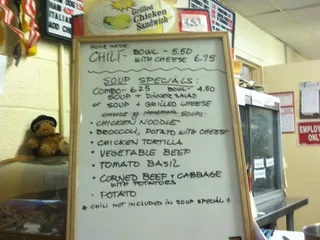 ITALIAN
Grilled
Chicken
Sandwich
4.50
HOME MADE
CHILI - BOWL - 5.50
WITH CHEESE 6.75
SOUP SPECIALS:
COMBO - 6.25 BOWL - 4.50
SOUP + DINNER SALAD
OR SOUP + GRILLED CHEESE
CHOICE OF HOMEMADE SOUPS:
• CHICKEN NOODLE
• BROCCOLI, POTATO WITH CHEESE
• CHICKEN TORTILLA
• VEGETABLE BEEF
• TOMATO BASIL
• CORNED BEEF + CABBAGE
WITH POTATOES
• POTATO
* CHILI NOT INCLUDED IN SOUP SPECIAL *
EMPLOYEES
ONLY